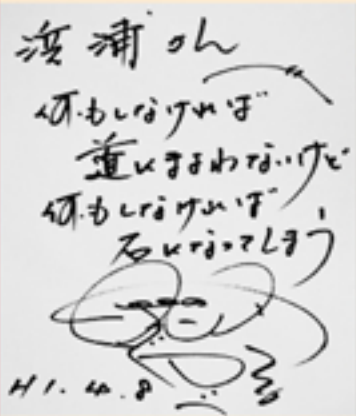 浜浦さん
何もしなければ
道にまよわないけど
何もしなければ
石になってしまう
H1.4.8